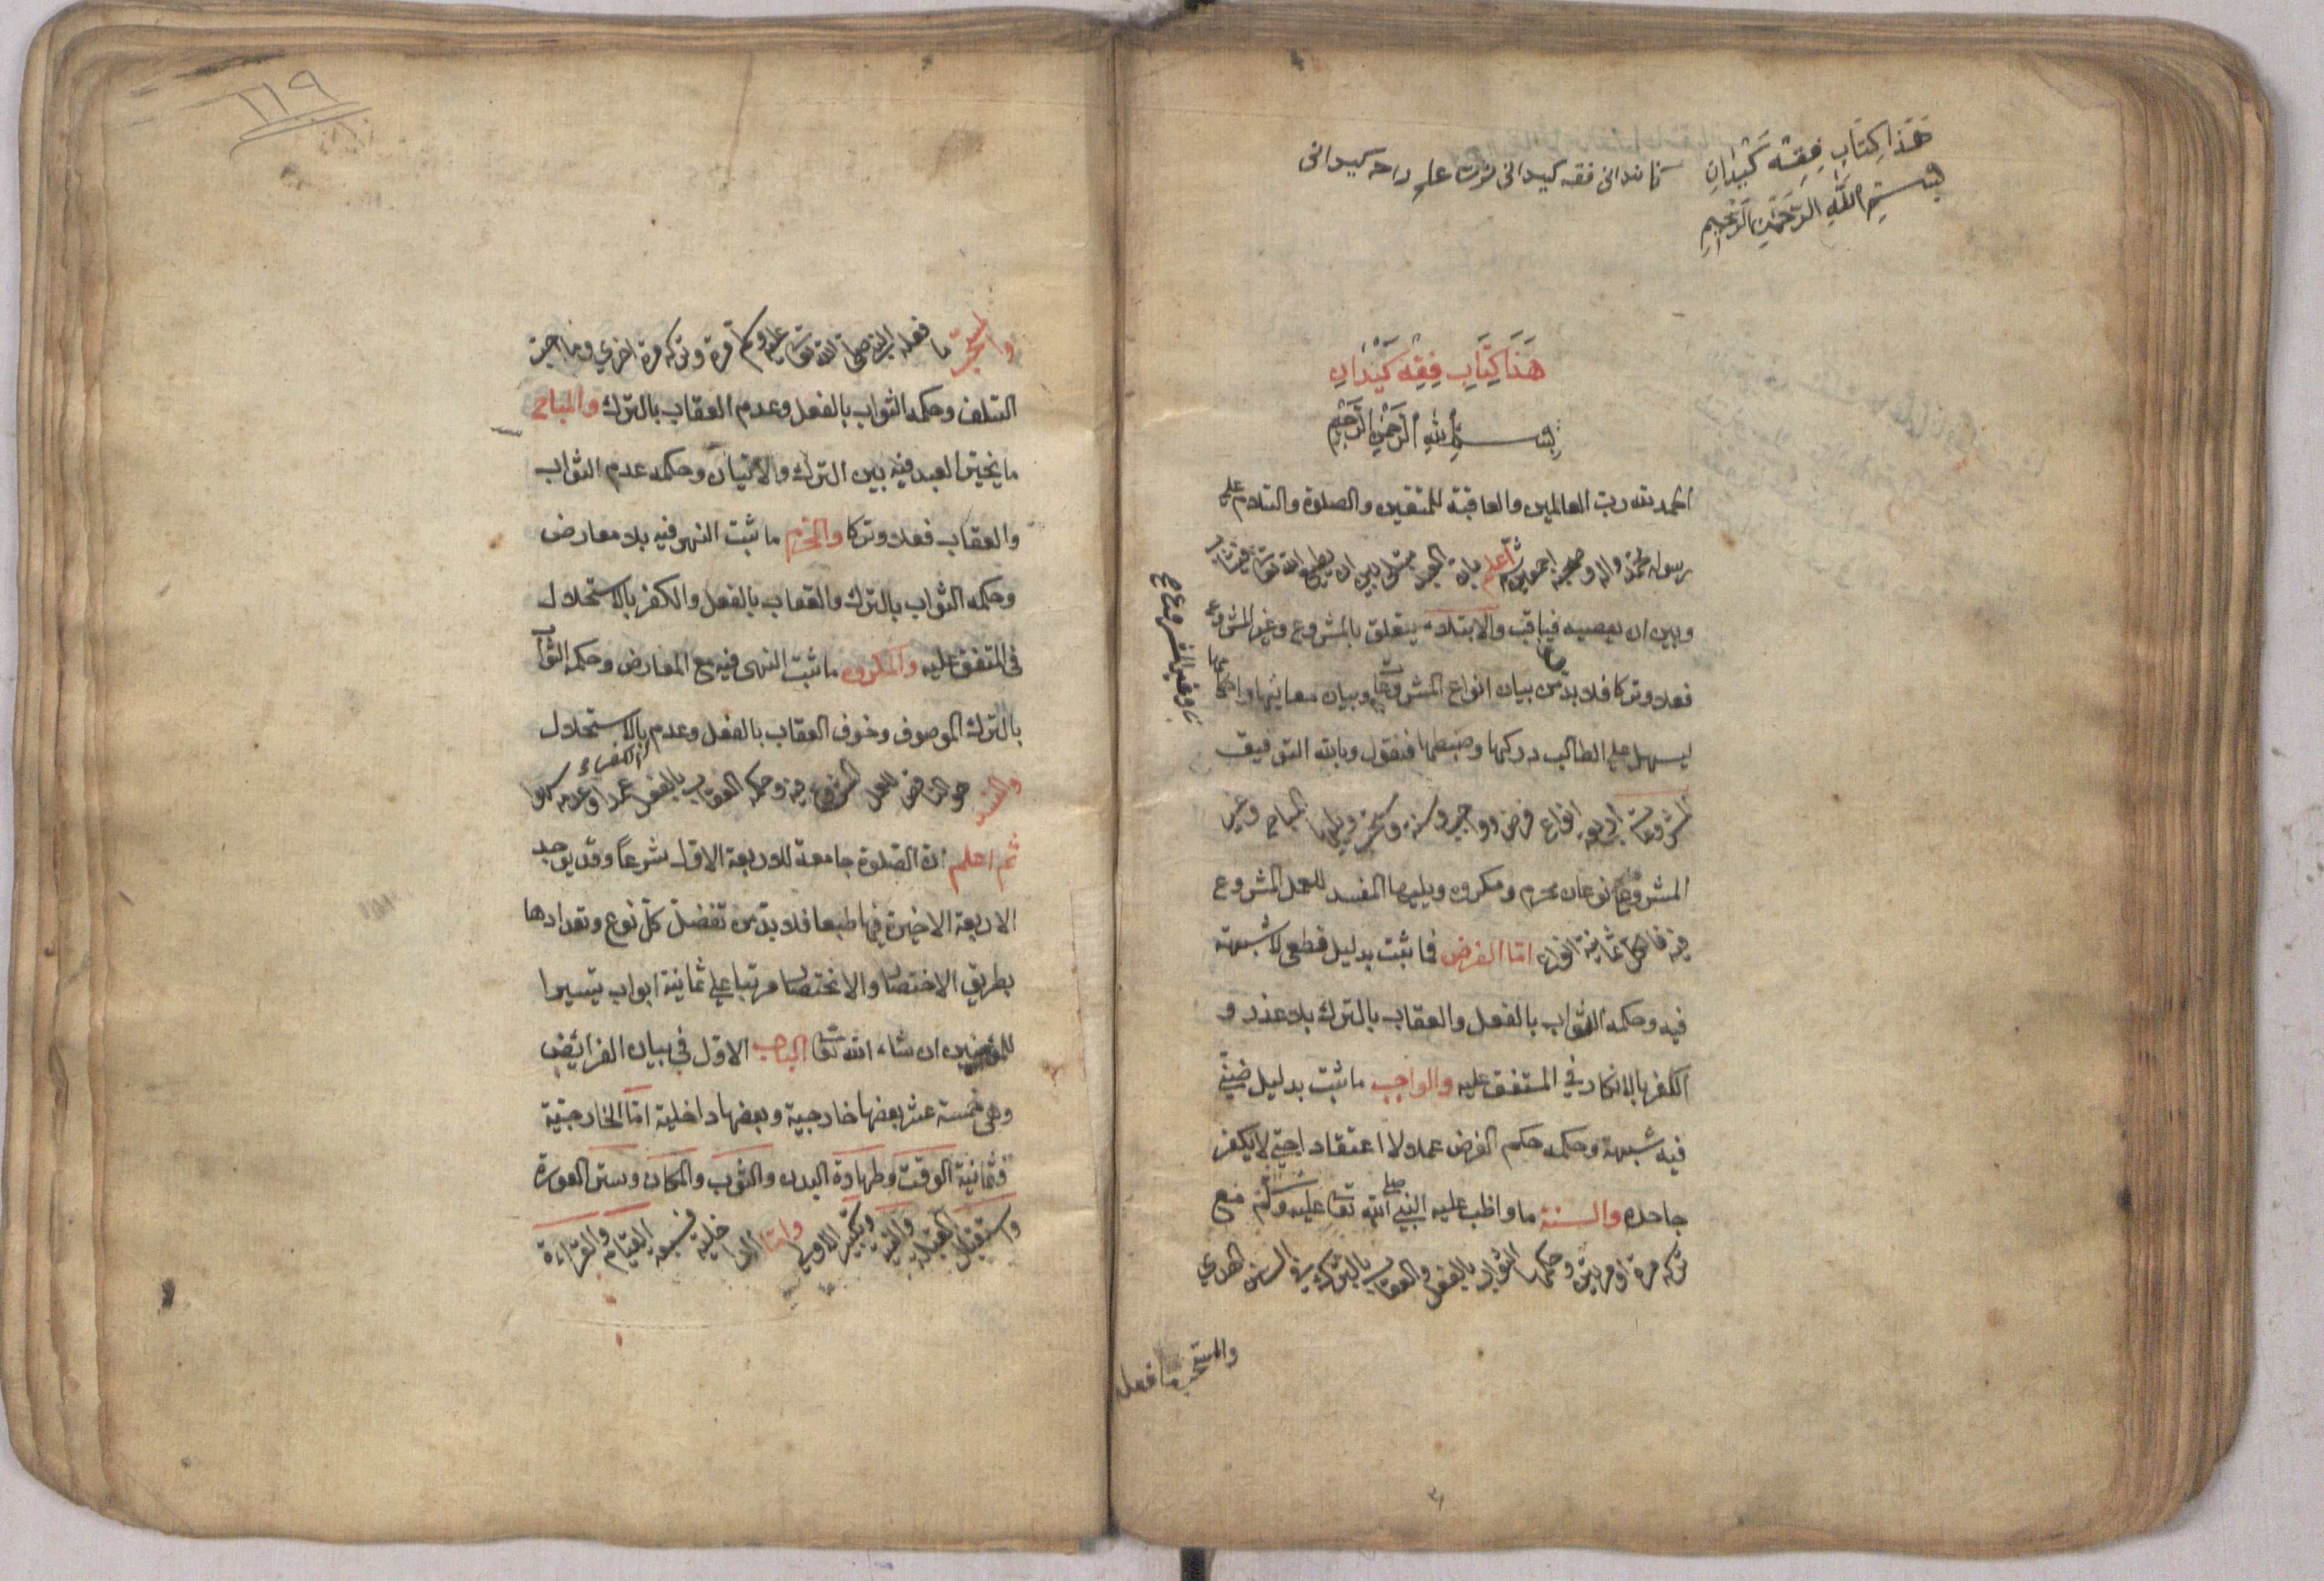 هَذَا كِتَابِ فِقْه كَيْدَانِ
بِسْمِ اللَّهِ الرَّحْمَنِ الرَّحِيمِ
فقه كيدانى كيدانى
هَذَا كِتَابِ فِقْه كَيْدَانِ
بِسْمِ اللهِ الرَّحْمَنِ الرَّحِيمِ
الحمد لله رب العالمين والعاقبة للمتقين والصلوة والسلام على
رسوله محمد واله وصحبه اجمعين ثم اعلم بان العبد مبتلى بين ان يطيع الله تعا فيثاب
وبين ان يعصيه فيعاقب والابتلاء يتعلق بالمشروع وغير المشروع
فعلا وتركا فلا بد من بيان انواع المشروعات وبيان معانيها واحكامها
ليسهل على الطالب دركها وضبطها فنقول وبالله التوفيق
المشروعات اربعة انواع فرض وواجب وسنة ومستحب ويليها المباح وغير
المشروع نوعان محرم ومكروه ويليها المفسد للعمل المشروع
فيه فالكل ثمانية انواع اما الفرض فما ثبت بدليل قطعى لا شبهة
فيه وحكمه الثواب بالفعل والعقاب بالترك بلا عذر و
الكفر بالانكار في المتفق عليه والواجب ما ثبت بدليل ظنّي
فيه شبهة وحكمه حكم الفرض عملا لا اعتقادا حتى لا يكفر
جاحده والسنة ما واظب عليه النبي صلى الله تعا عليه وسلم مع
تركه مرة او مرتين وحكمها الثواب بالفعل والعقاب بالترك في السنن الهدي
والمستحب ما فعل
والمستحب ما فعله النبي صلى الله تعا عليه وسلم مرة وتركه مرة اخرى وما احبه
السلف وحكمه الثواب بالفعل وعدم العقاب بالترك والمباح
ما يخير العبد فيه بين الترك والاتيان وحكمه عدم الثواب
والعقاب فعلا وتركا والمحرم ما ثبت النهى فيه بلا معارض
وحكمه الثواب بالترك والعقاب بالفعل والكفر بالاستحلال
فى المتفق عليه والمكروه ما ثبت النهى فيه مع المعارض وحكمه الثواب
بالترك الموصوف وخوف العقاب بالفعل وعدم الكفر بالاستحلال
والمفسد هو الناقض للعمل المشروع فيه وحكمه العقاب بالفعل عمدا وعدمه سهوا
ثم اعلم ان الصلوة جامعة للاربعة الاول شرعاً وقد يوجد
الاربعة الاخيرة فيها طبعا فلا بد من تفضل كل نوع وتعدادها
بطريق الاختصا والانحتصا مرتبا على ثمانية ابواب تيسيرا
للمؤمنين ان شاء الله تعا الباب الاول في بيان الفرائض
وهى خمسة عشر بعضها خارجية وبعضها داخلية امّا الخارجية
فثمانية الوقت وطهارة البدن والثوب والمكان وستر العورة
واستقبال القبلة والنية وتكبير الاولى وامّا الداخلية فسبعة القيام والقراءة